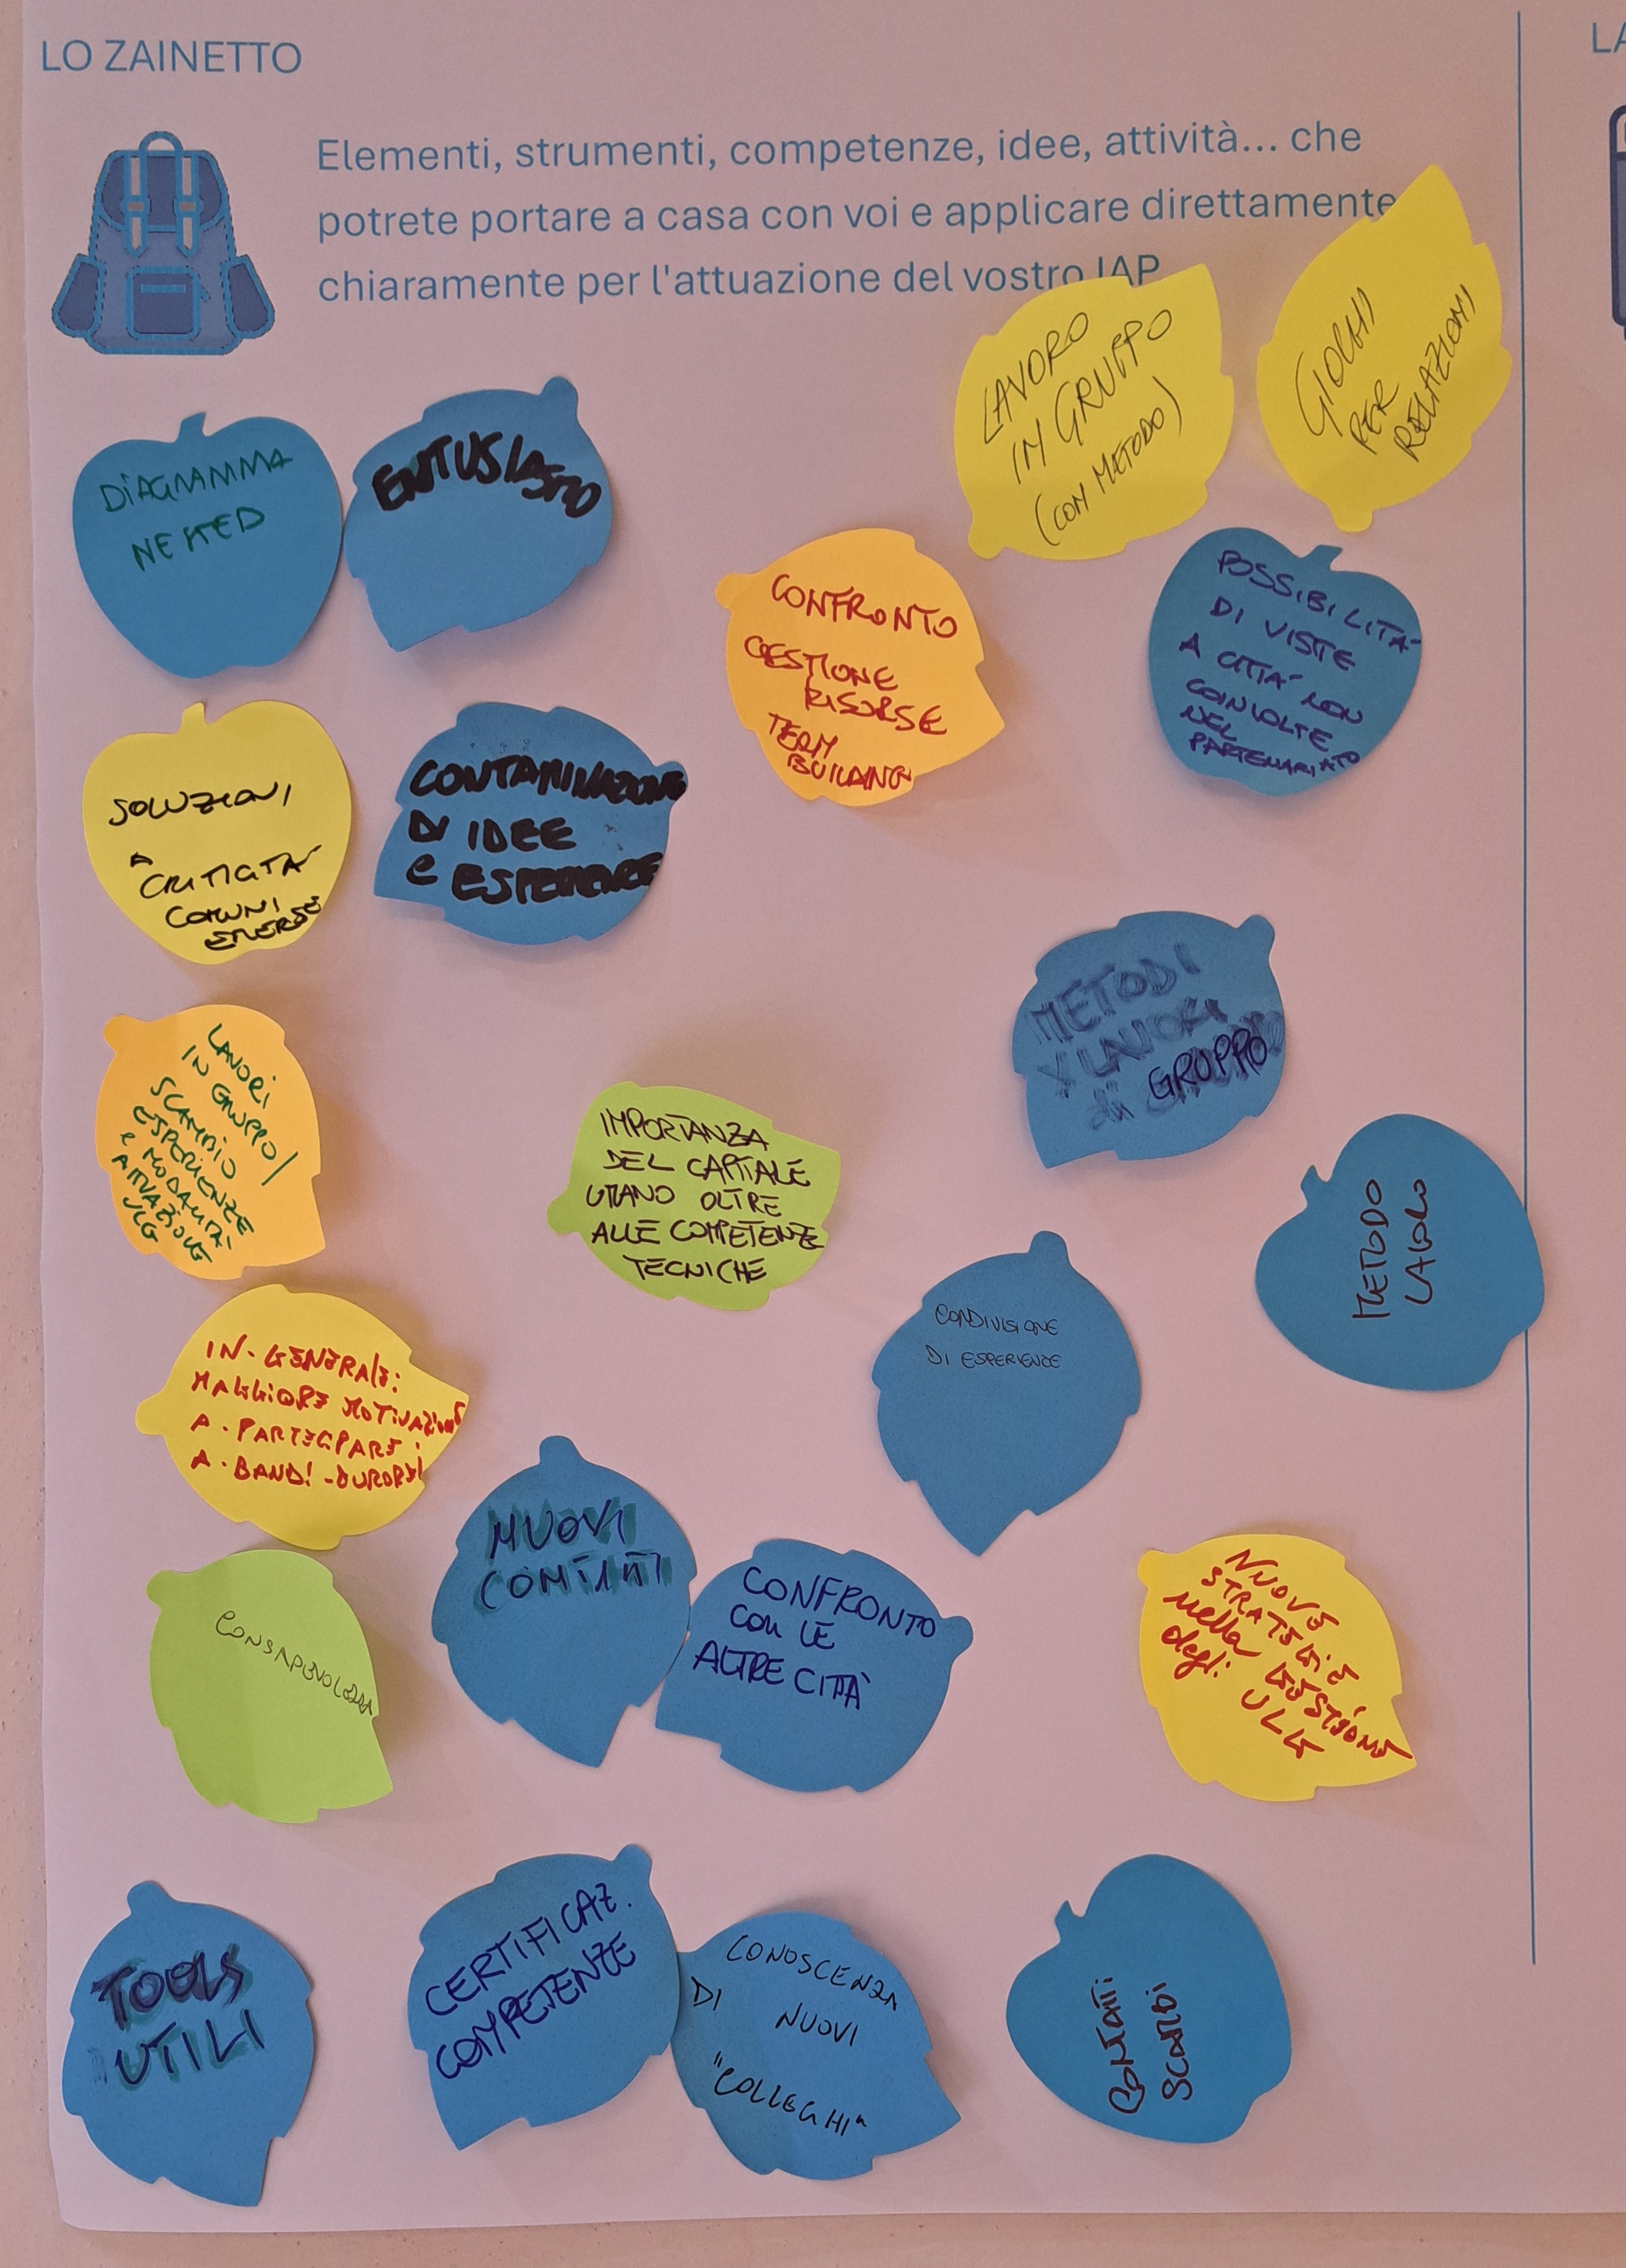 LO ZAINETTO
LA
Elementi, strumenti, competenze, idee, attività... che
potrete portare a casa con voi e applicare direttamente
chiaramente per l'attuazione del vostro IAP
LAVORO
IN GRUPPO
(CON METODO)
GIOCHI
PER
RELAZIONI
DIAGRAMMA
ENTUSIASMO
CONFRONTO
GESTIONE
RISORSE
TEAM
BUILDING
POSSIBILITA'
DI VISTE
A CITTA' NON
COINVOLTE
NEL
PARTENARIATO
SOLUZIONI
A
CRITICITA'
COMUNI
EMERSE
CONTAMINAZIONE
DI IDEE
e ESPERIENZE
METODI
X LAVORI
di GRUPPO
LAVORI
IN GRUPPO/
SCAMBIO
ESPERIENZE
e MODALITA'
ATTUAZIONE
ULG
IMPORTANZA
DEL CAPITALE
UMANO OLTRE
ALLE COMPETENZE
TECNICHE
METODO
LAVORO
CONDIVISIONE
DI ESPERIENZE
IN GENERALE:
MAGGIORE MOTIVAZIONE
A PARTECIPARE
A BANDI EUROPEI
NUOVI
CONTATTI
CONFRONTO
CON LE
ALTRE CITTÀ
NUOVE
STRATEGIE
nella GESTIONE
degli ULG
CONSAPEVOLEZZA
TOOLS
UTILI
CERTIFICAZ.
COMPETENZE
CONOSCENZA
DI NUOVI
"COLLEGHI"
CONTATTI
SCAMBI